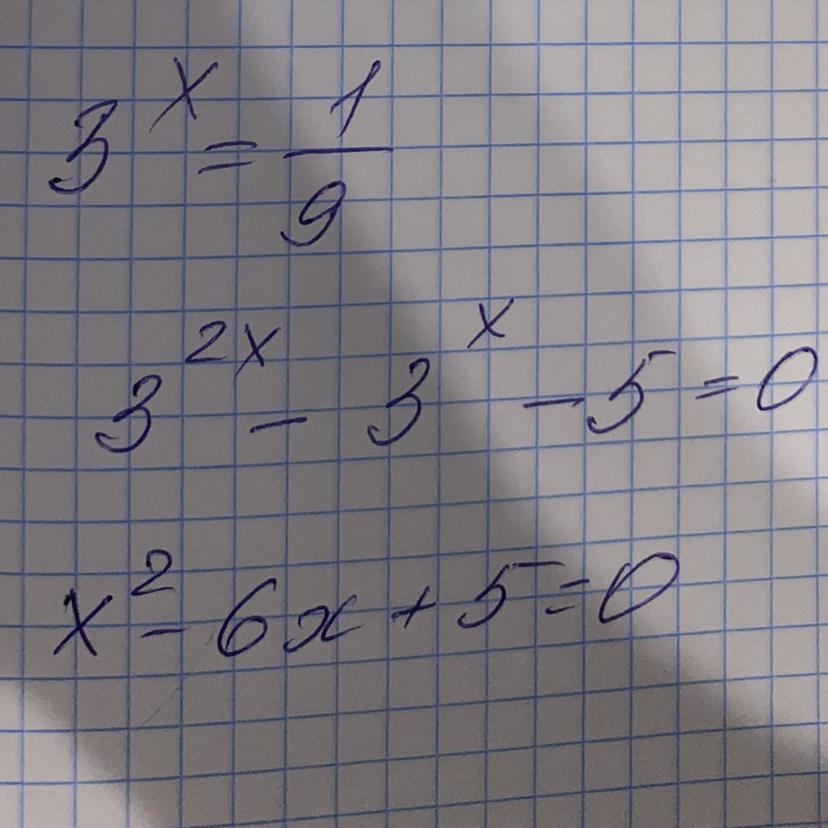 3^x = 1/9
3^{2x} - 3^x - 5 = 0
x^2 - 6x + 5 = 0